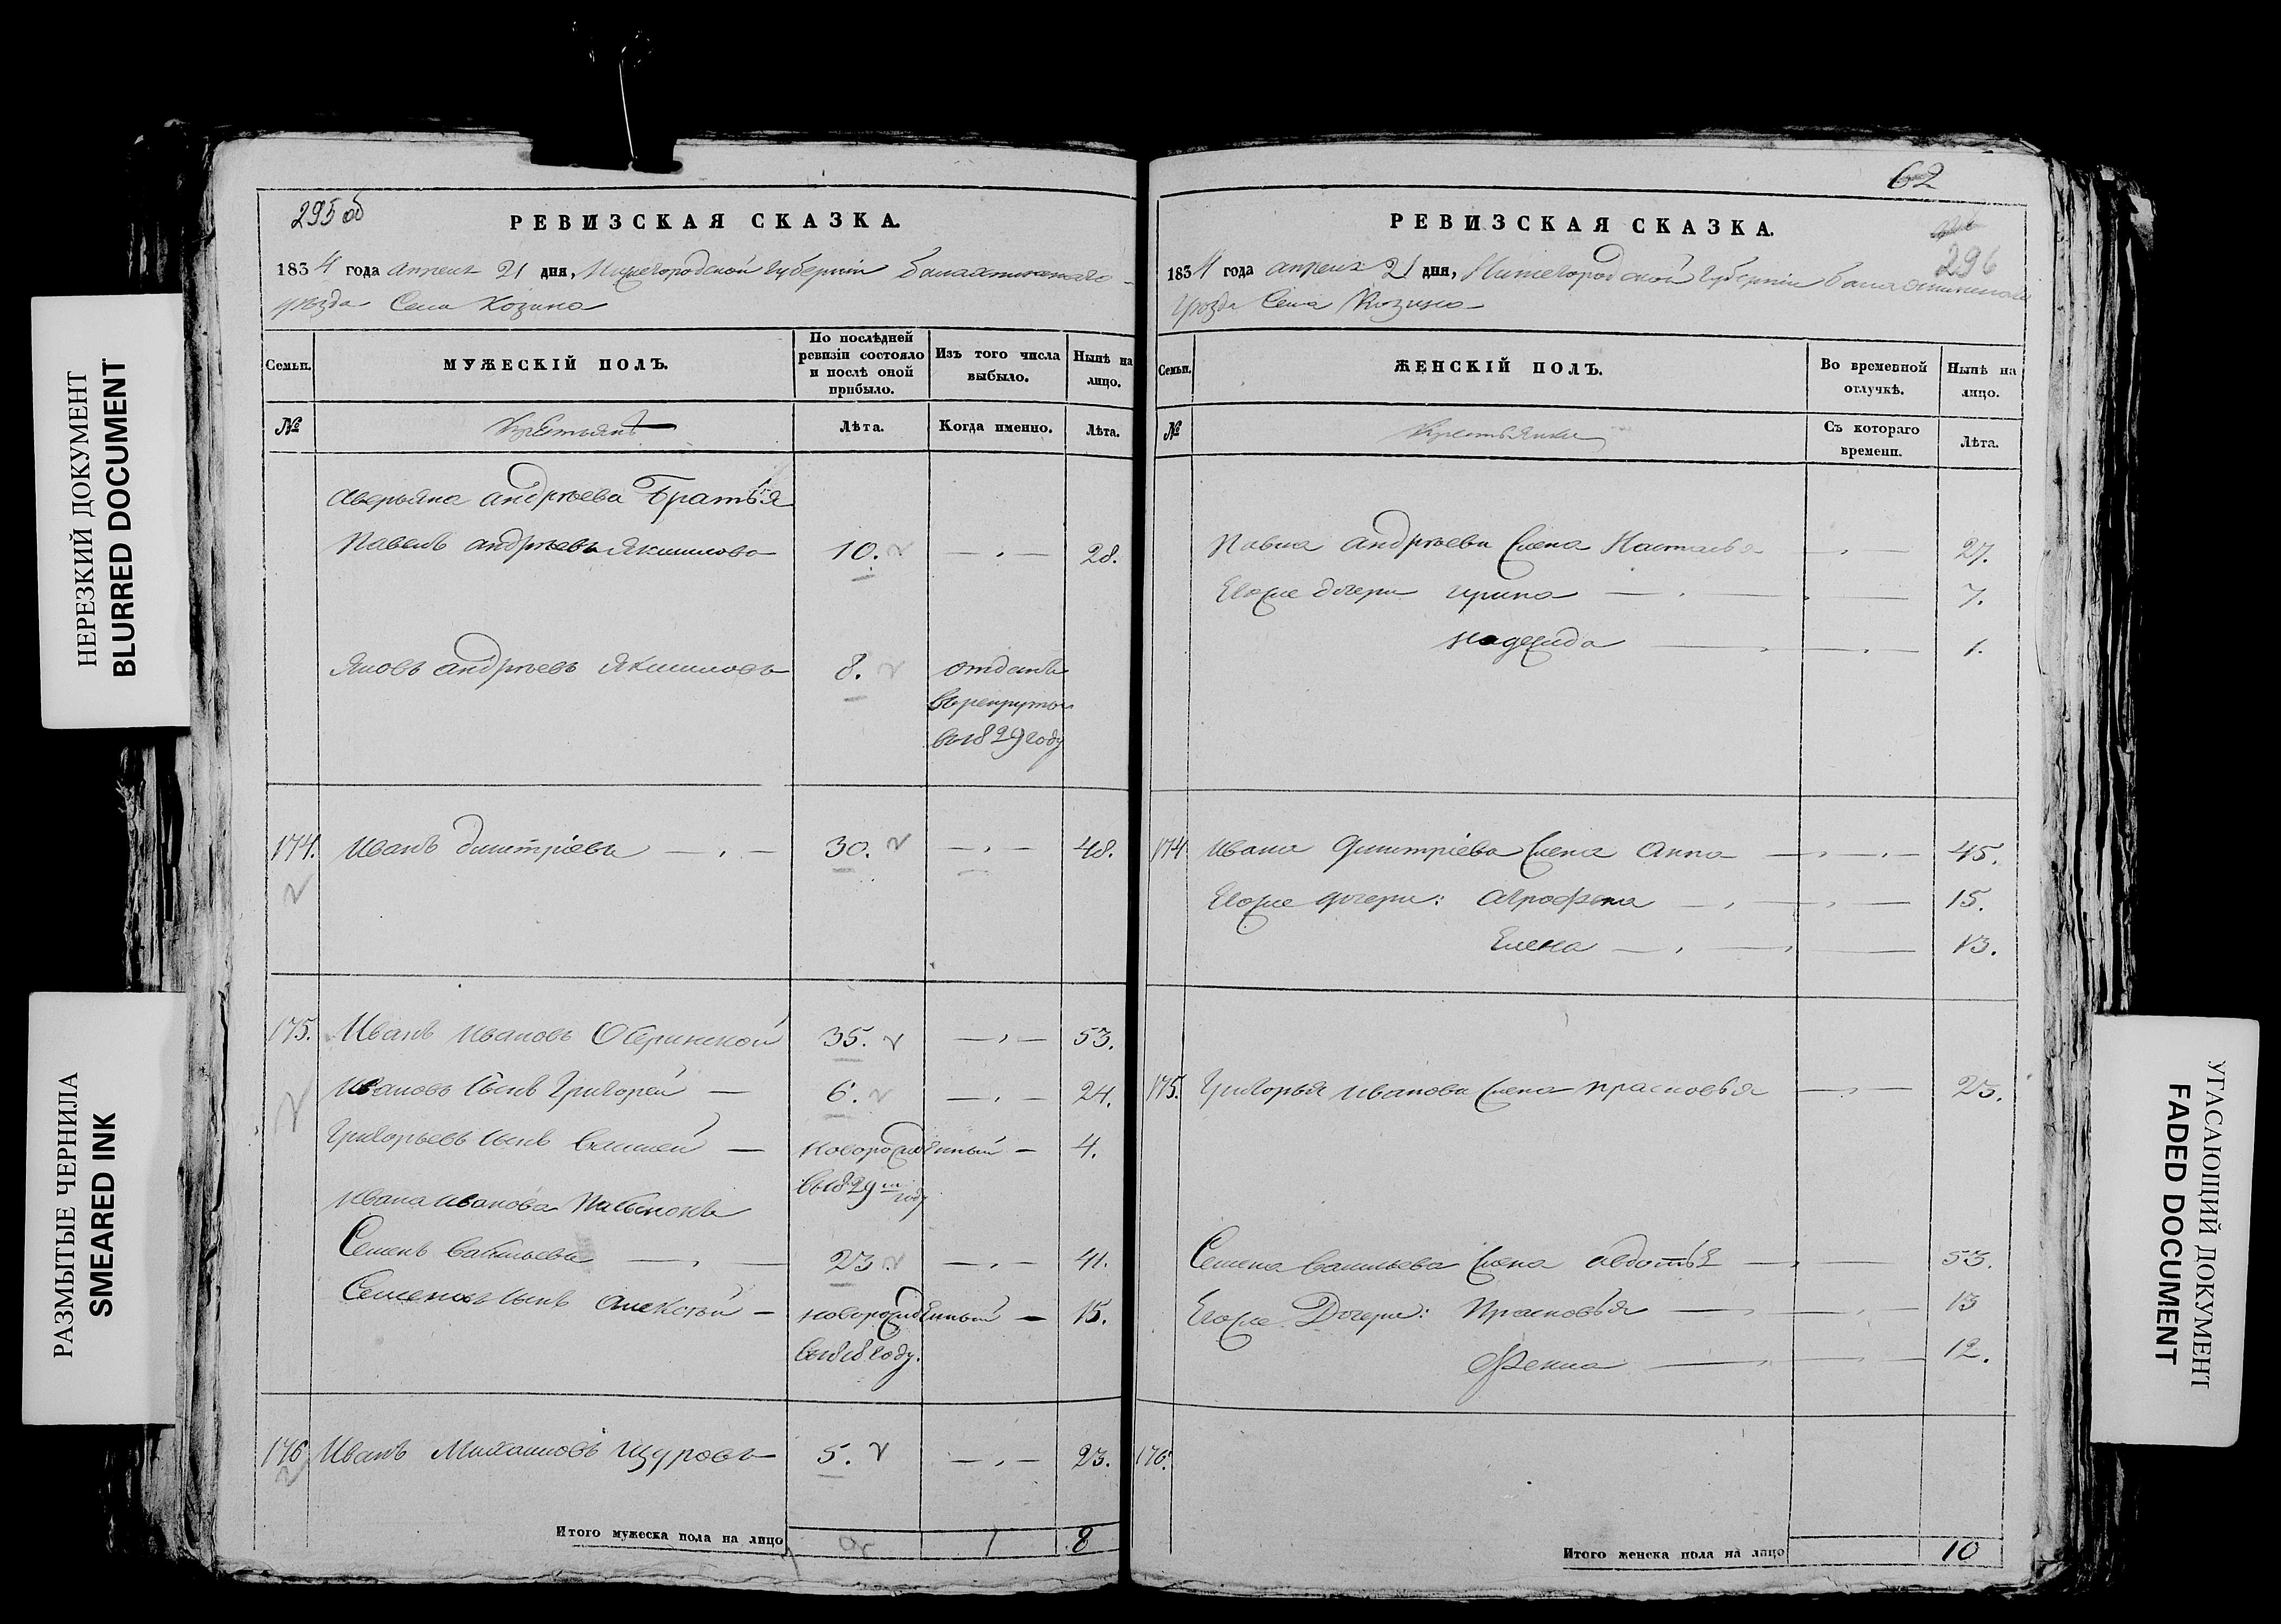 НЕРЕЗКИЙ ДОКУМЕНТ
BLURRED DOCUMENT
РАЗМЫТЫЕ ЧЕРНИЛА
SMEARED INK
295 об
РЕВИЗСКАЯ СКАЗКА.
1834 года апреля 21 дня, Нижегородской губернии Балахнинскаго
уезда Села Козина
Семьи.
МУЖЕСКІЙ ПОЛЪ.
По послѣдней ревизіи состояло и послѣ оной прибыло.
Изъ того числа выбыло.
Нынѣ на лицо.
№
Крестьянъ
Лѣта.
Когда именно.
Лѣта.
Аверьяна андрѣева Братья
Павелъ андрѣевъ 10. 28.
Яковъ андрѣевъ 8. отданъ
въ рекруты
въ 1829 году
174. Иванъ дмитріевъ 30. 48.
175. Иванъ Ивановъ 35. 53.
Ивановъ сынъ Григорей 6. 24.
Григорьевъ сынъ новорожденный 4.
въ 1829 м году
Ивана иванова
Семенъ васильевъ 23 41.
Семеновъ сынъ Алексѣй новорожденный 15.
въ 1818 году.
176 Иванъ Михаиловъ Щуровъ 5. 23.
Итого мужеска пола на лицо 1 8
62
296
РЕВИЗСКАЯ СКАЗКА.
1834 года апреля 21 дня, Нижегородской губерніи Балахнинскаго
уѣзда Села Козина
Семьи.
ЖЕНСКІЙ ПОЛЪ.
Во временной отлучкѣ.
Нынѣ на лицо.
№
Крестьянки
Съ котораго времени.
Лѣта.
Павла андрѣева жена Настасья 27.
Егоже дочери ирина 7.
надежда 1.
174 ивана Дмитріева жена Анна 45.
Егоже дочери: Аграфена 15.
Елена 13.
175. Григорья иванова жена прасковья 23.
Семена васильева жена авдотья 53.
Егоже Дочери: Прасковья 13
Фекла 12.
176.
Итого женска пола на лицо 10
УГАСАЮЩИЙ ДОКУМЕНТ
FADED DOCUMENT